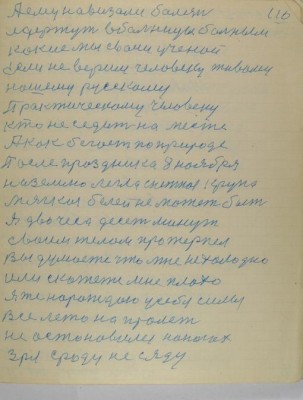 116
А ему навизали болезн
и держут в болницы болным
какие мы свами ученой
Если не верим человеку живому
нашему русскому
Практическому человеку
кто не седит на месте
А как бегает по природе
После праздника 8 ноября
на землю легла снежная крупа
мяхкая белей не может быт
Я два часа десят минут
своем телом протерпел
Вы думаете что мне не холодно
или скажете мне плохо
Я же нарождаю у себя силы
Все лето на пролет
не остановился на ногах
зря сроду не сяду